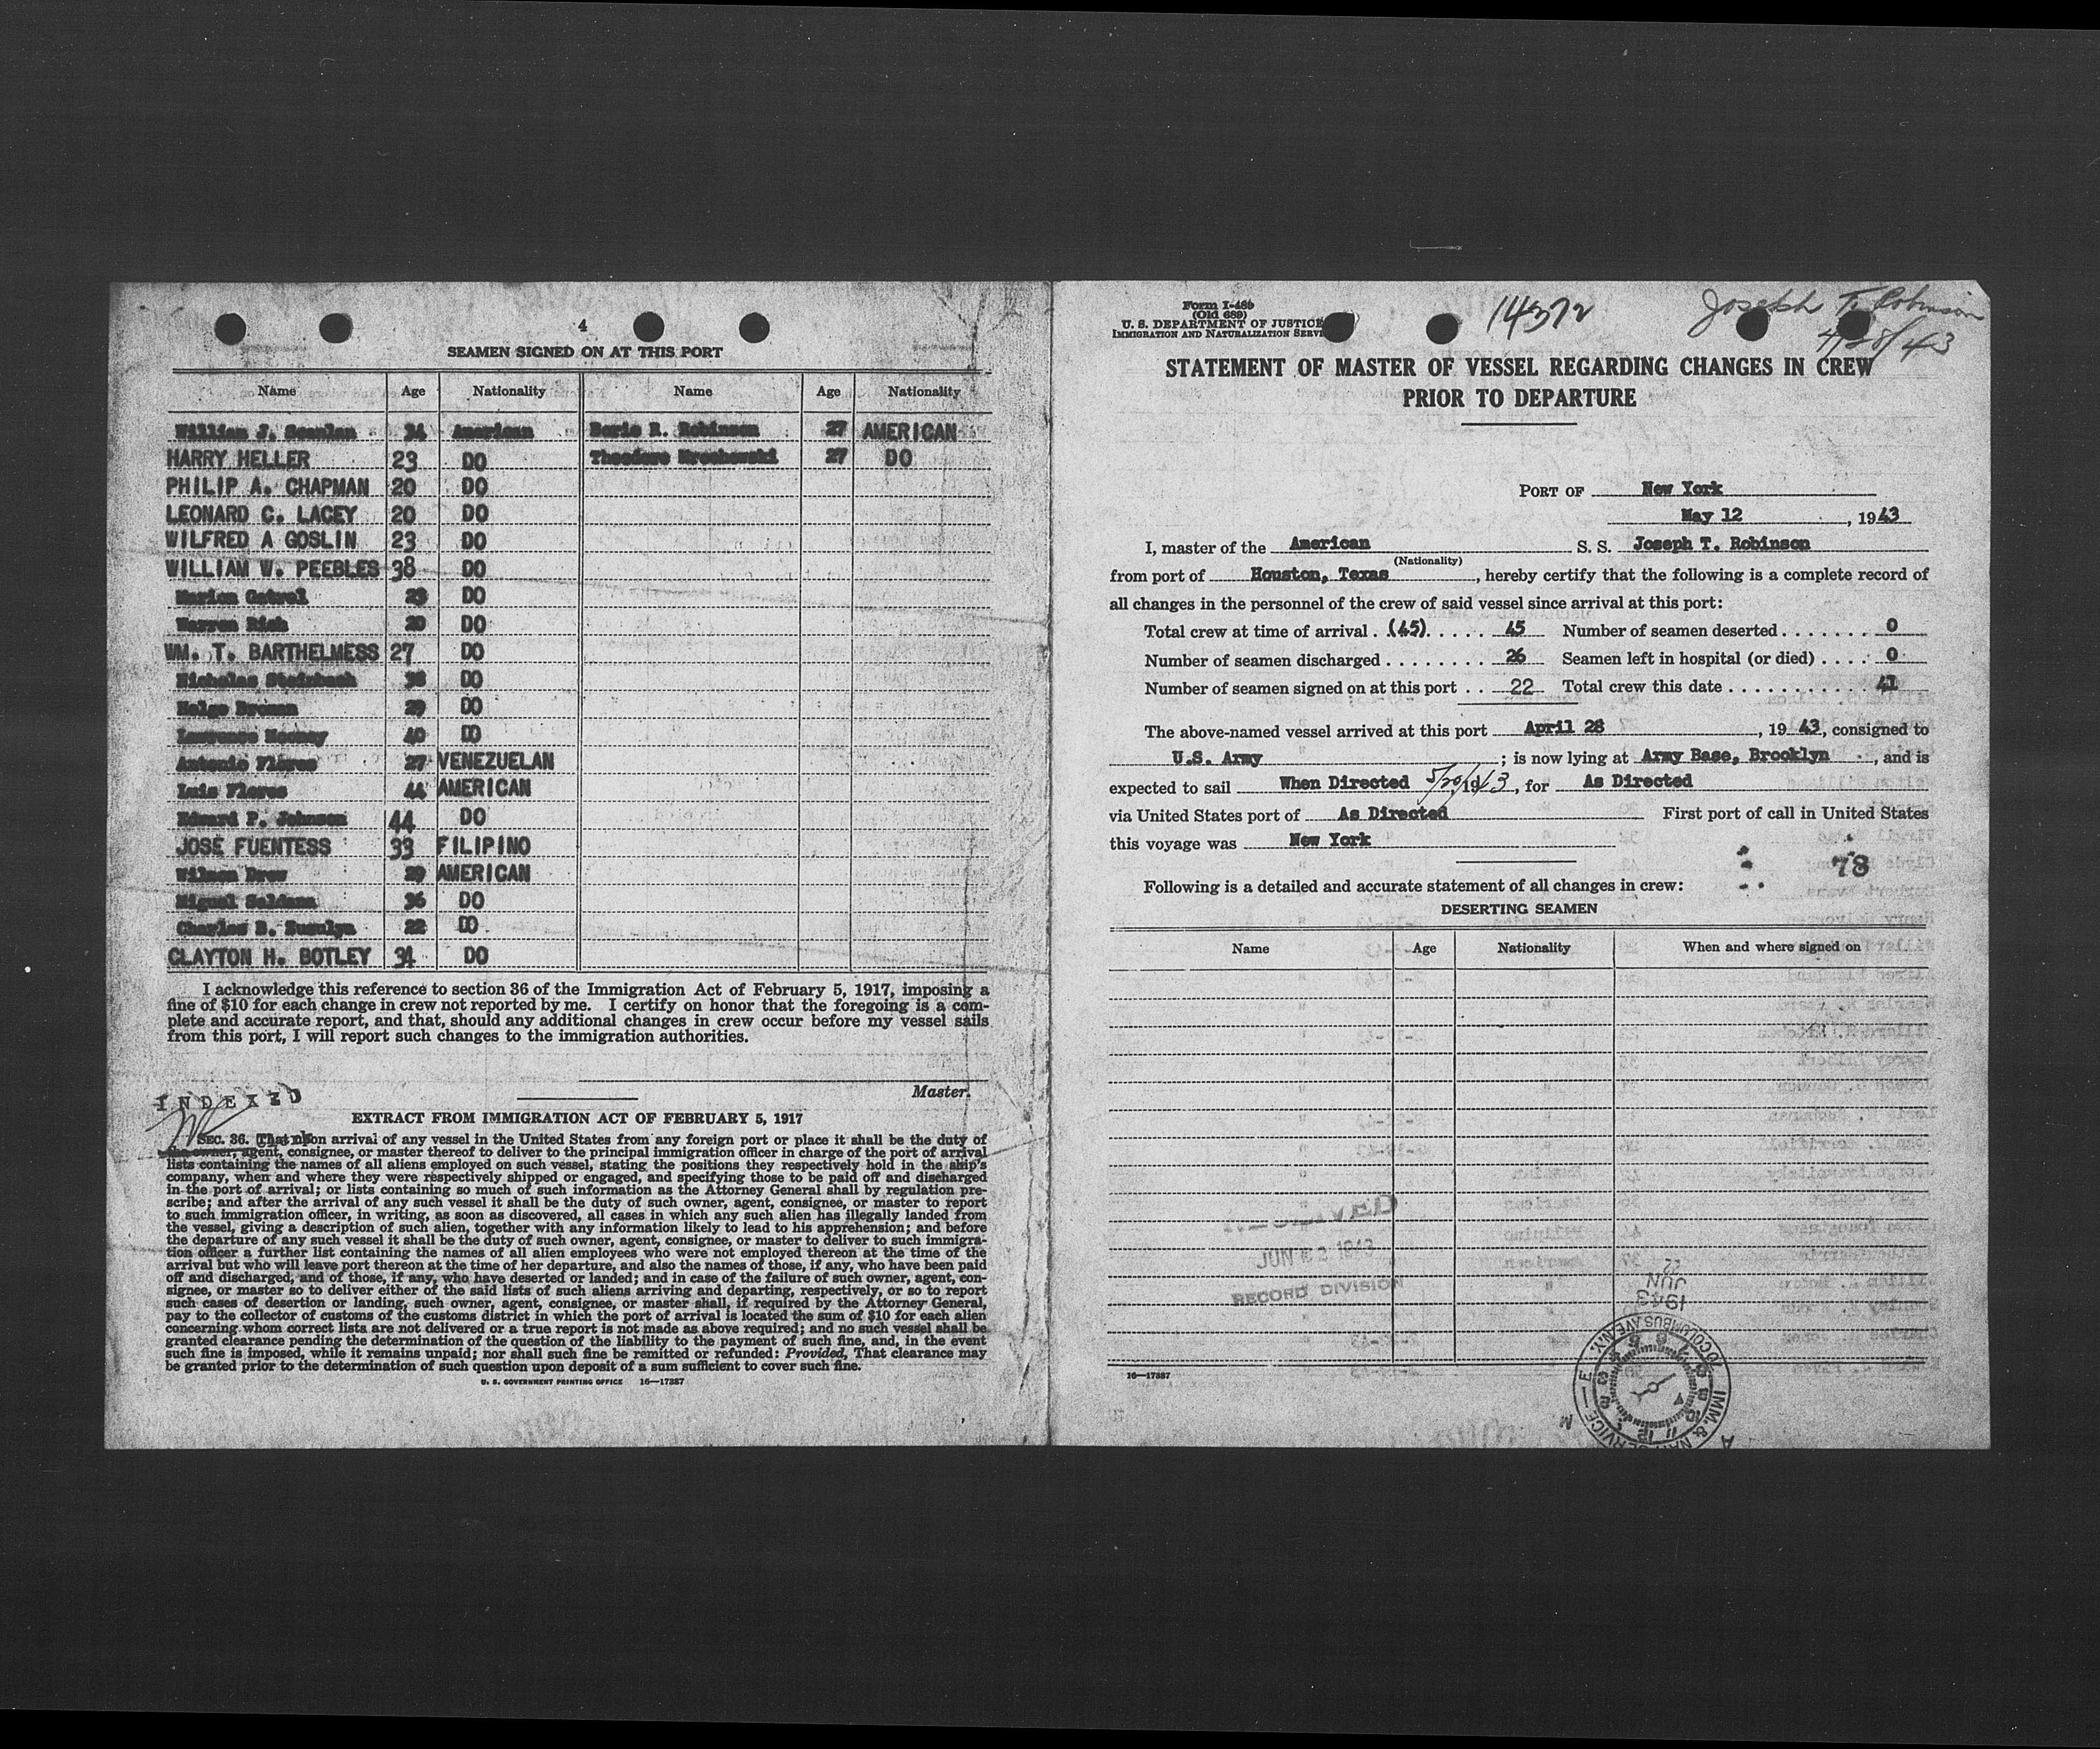 4
SEAMEN SIGNED ON AT THIS PORT
Name Age Nationality Name Age Nationality
William J. Scanlan 34 American Boris R. Robinson 27 AMERICAN
HARRY HELLER 23 DO Theodore 27 DO
PHILIP A. CHAPMAN 20 DO
LEONARD C. LACEY 20 DO
WILFRED A GOSLIN 23 DO
WILLIAM W. PEEBLES 38 DO
Marion DO
Warren Rich 20 DO
WM. T. BARTHELMESS 27 DO
Nicholas Steinbach DO
Helge 29 DO
Lawrence 40 DO
Antonio Flores 27 VENEZUELAN
Luis Flores 44 AMERICAN
Edward P. Johnson 44 DO
JOSE FUENTESS 33 FILIPINO
Wilson Drew 29 AMERICAN
Miguel Saldana 36 DO
Charles B. 22 DO
CLAYTON H. BOTLEY 34 DO
I acknowledge this reference to section 36 of the Immigration Act of February 5, 1917, imposing a
fine of $10 for each change in crew not reported by me. I certify on honor that the foregoing is a com-
plete and accurate report, and that, should any additional changes in crew occur before my vessel sails
from this port, I will report such changes to the immigration authorities.
Master.
INDEXED
EXTRACT FROM IMMIGRATION ACT OF FEBRUARY 5, 1917
SEC. 36. That upon arrival of any vessel in the United States from any foreign port or place it shall be the duty of
the owner, agent, consignee, or master thereof to deliver to the principal immigration officer in charge of the port of arrival
lists containing the names of all aliens employed on such vessel, stating the positions they respectively hold in the ship's
company, when and where they were respectively shipped or engaged, and specifying those to be paid off and discharged
in the port of arrival; or lists containing so much of such information as the Attorney General shall by regulation pre-
scribe; and after the arrival of any such vessel it shall be the duty of such owner, agent, consignee, or master to report
to such immigration officer, in writing, as soon as discovered, all cases in which any such alien has illegally landed from
the vessel, giving a description of such alien, together with any information likely to lead to his apprehension; and before
the departure of any such vessel it shall be the duty of such owner, agent, consignee, or master to deliver to such immigra-
tion officer a further list containing the names of all alien employees who were not employed thereon at the time of the
arrival but who will leave port thereon at the time of her departure, and also the names of those, if any, who have been paid
off and discharged, and of those, if any, who have deserted or landed; and in case of the failure of such owner, agent, con-
signee, or master so to deliver either of the said lists of such aliens arriving and departing, respectively, or so to report
such cases of desertion or landing, such owner, agent, consignee, or master shall, if required by the Attorney General,
pay to the collector of customs of the customs district in which the port of arrival is located the sum of $10 for each alien
concerning whom correct lists are not delivered or a true report is not made as above required; and no such vessel shall be
granted clearance pending the determination of the question of the liability to the payment of such fine, and, in the event
such fine is imposed, while it remains unpaid; nor shall such fine be remitted or refunded: Provided, That clearance may
be granted prior to the determination of such question upon deposit of a sum sufficient to cover such fine.
U. S. GOVERNMENT PRINTING OFFICE 16—17387
Form I-489
(Old 689)
U. S. DEPARTMENT OF JUSTICE
IMMIGRATION AND NATURALIZATION SERVI
14372
Joseph T. Robinson
4/28/43
STATEMENT OF MASTER OF VESSEL REGARDING CHANGES IN CREW
PRIOR TO DEPARTURE
PORT OF New York
May 12, 1943
I, master of the American S. S. Joseph T. Robinson
(Nationality)
from port of Houston, Texas, hereby certify that the following is a complete record of
all changes in the personnel of the crew of said vessel since arrival at this port:
Total crew at time of arrival . (45) . . . . . 45 Number of seamen deserted . . . . . . . 0
Number of seamen discharged . . . . . . . . 26 Seamen left in hospital (or died) . . . . 0
Number of seamen signed on at this port . . 22 Total crew this date . . . . . . . . . . . 41
The above-named vessel arrived at this port April 28, 1943, consigned to
U.S. Army; is now lying at Army Base, Brooklyn, and is
expected to sail When Directed 5/20/1943, for As Directed
via United States port of As Directed First port of call in United States
this voyage was New York
78
Following is a detailed and accurate statement of all changes in crew:
DESERTING SEAMEN
Name Age Nationality When and where signed on
RECEIVED
JUN 23 1943
RECORD DIVISION
22
JUN
1943
IMM. & NAT. SERVICE — E. 70 COLUMBUS AVE. N.Y.
16—17387